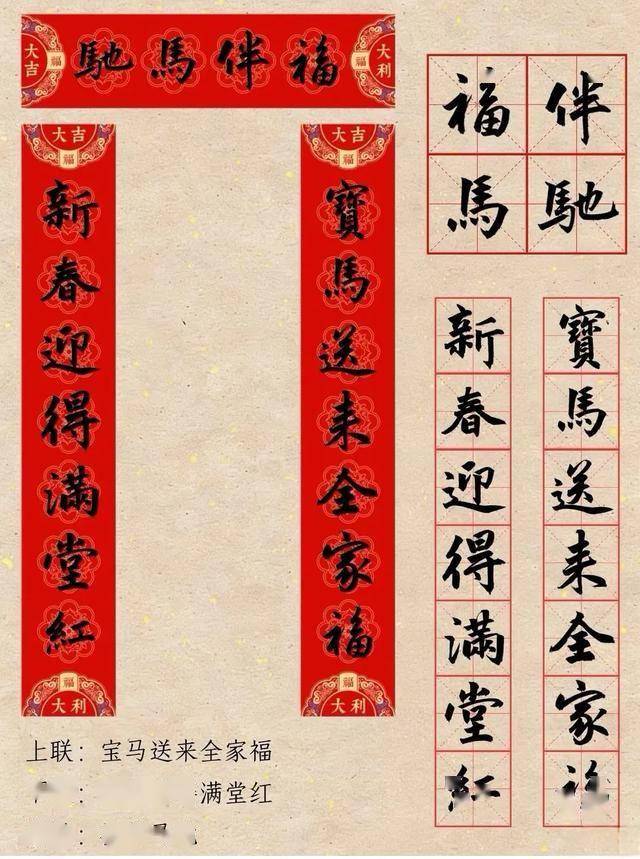 大吉
福
福伴馬馳
福
大利
大吉
福
寶馬送来全家福
福
大利
大吉
福
新春迎得滿堂紅
福
大利
福伴
馬馳
寶馬送来全家
新春迎得滿堂
上联：宝马送来全家福
满堂红